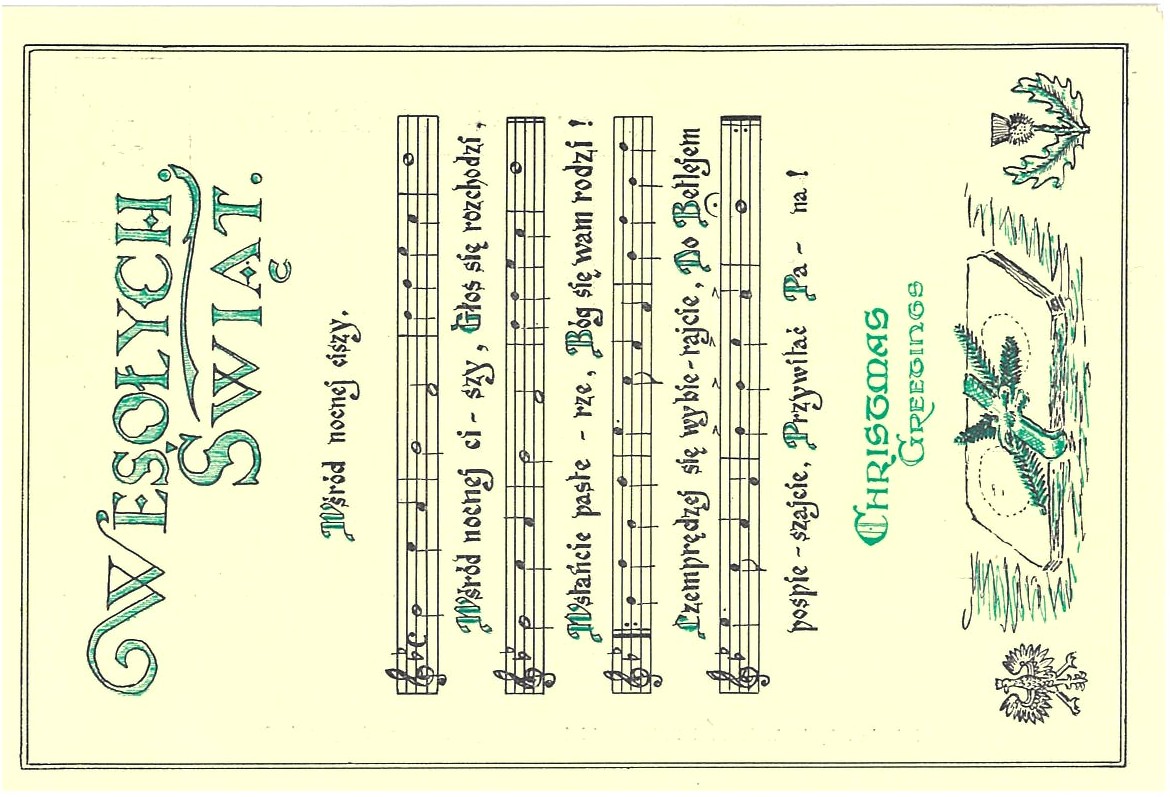 WESOŁYCH
ŚWIĄT.
Wśród nocnej ciszy.
Wśród nocnej ci - szy, Głos się rozchodzi,
Wstańcie paste - rze, Bóg się wam rodzi!
Czemprędzej się wybie - rajcie, Do Betlejem
pospie - szajcie, Przywitać Pa - na!
CHRISTMAS
GREETINGS